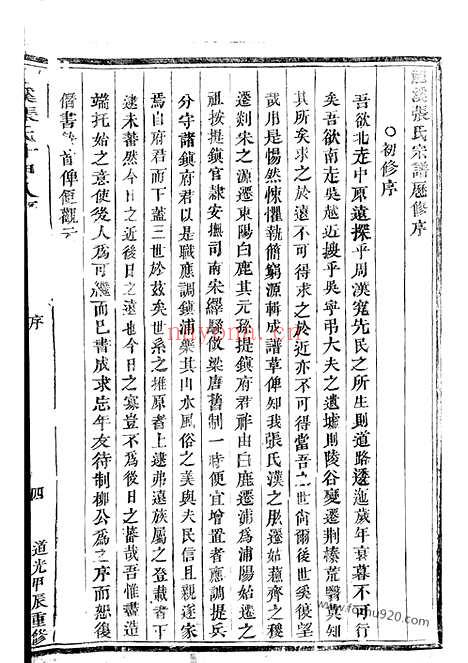 龍溪張氏宗譜歷修序
○初修序
吾欲北走中原遠探乎周漢寬先民之所生則道路逶迤歲年衰暮不可行
矣吾欲南走吳越近搜乎吳寧弔大夫之遺墟則陵谷變遷荊榛荒翳莫知
所求之於遠不可得求之於近亦不可得當吾之世尚爾後世奚從望
哉用是惕然悚懼執簡窮源輯成譜草俾知我張氏漢之脈遷始蘓齊之稷
遷剡宋之源遷東陽白鹿其元孫提鎮府君祚由白鹿遷浦為浦陽始遷之
祖按提鎮官隸安撫司南宋繹騷倣梁唐舊制一時便宜增置者應調提兵
分守諸鎮府君以是職應調鎮浦樂其山水風俗之美與夫民信且親遂家
焉自府君而下蓋三世於茲矣世系之推原者上逮弗遠族屬之登載者下
逮未蕃然今日之近後日之遠也今日之寡豈不為後日之蕃哉吾惟盡造
端托始之意使後人為可繼而已書成求忘年友待制柳公為之序而始復
僭書 首俾便觀云
序
四
道光甲辰重修
nayona.cn
www.fozhu920.com